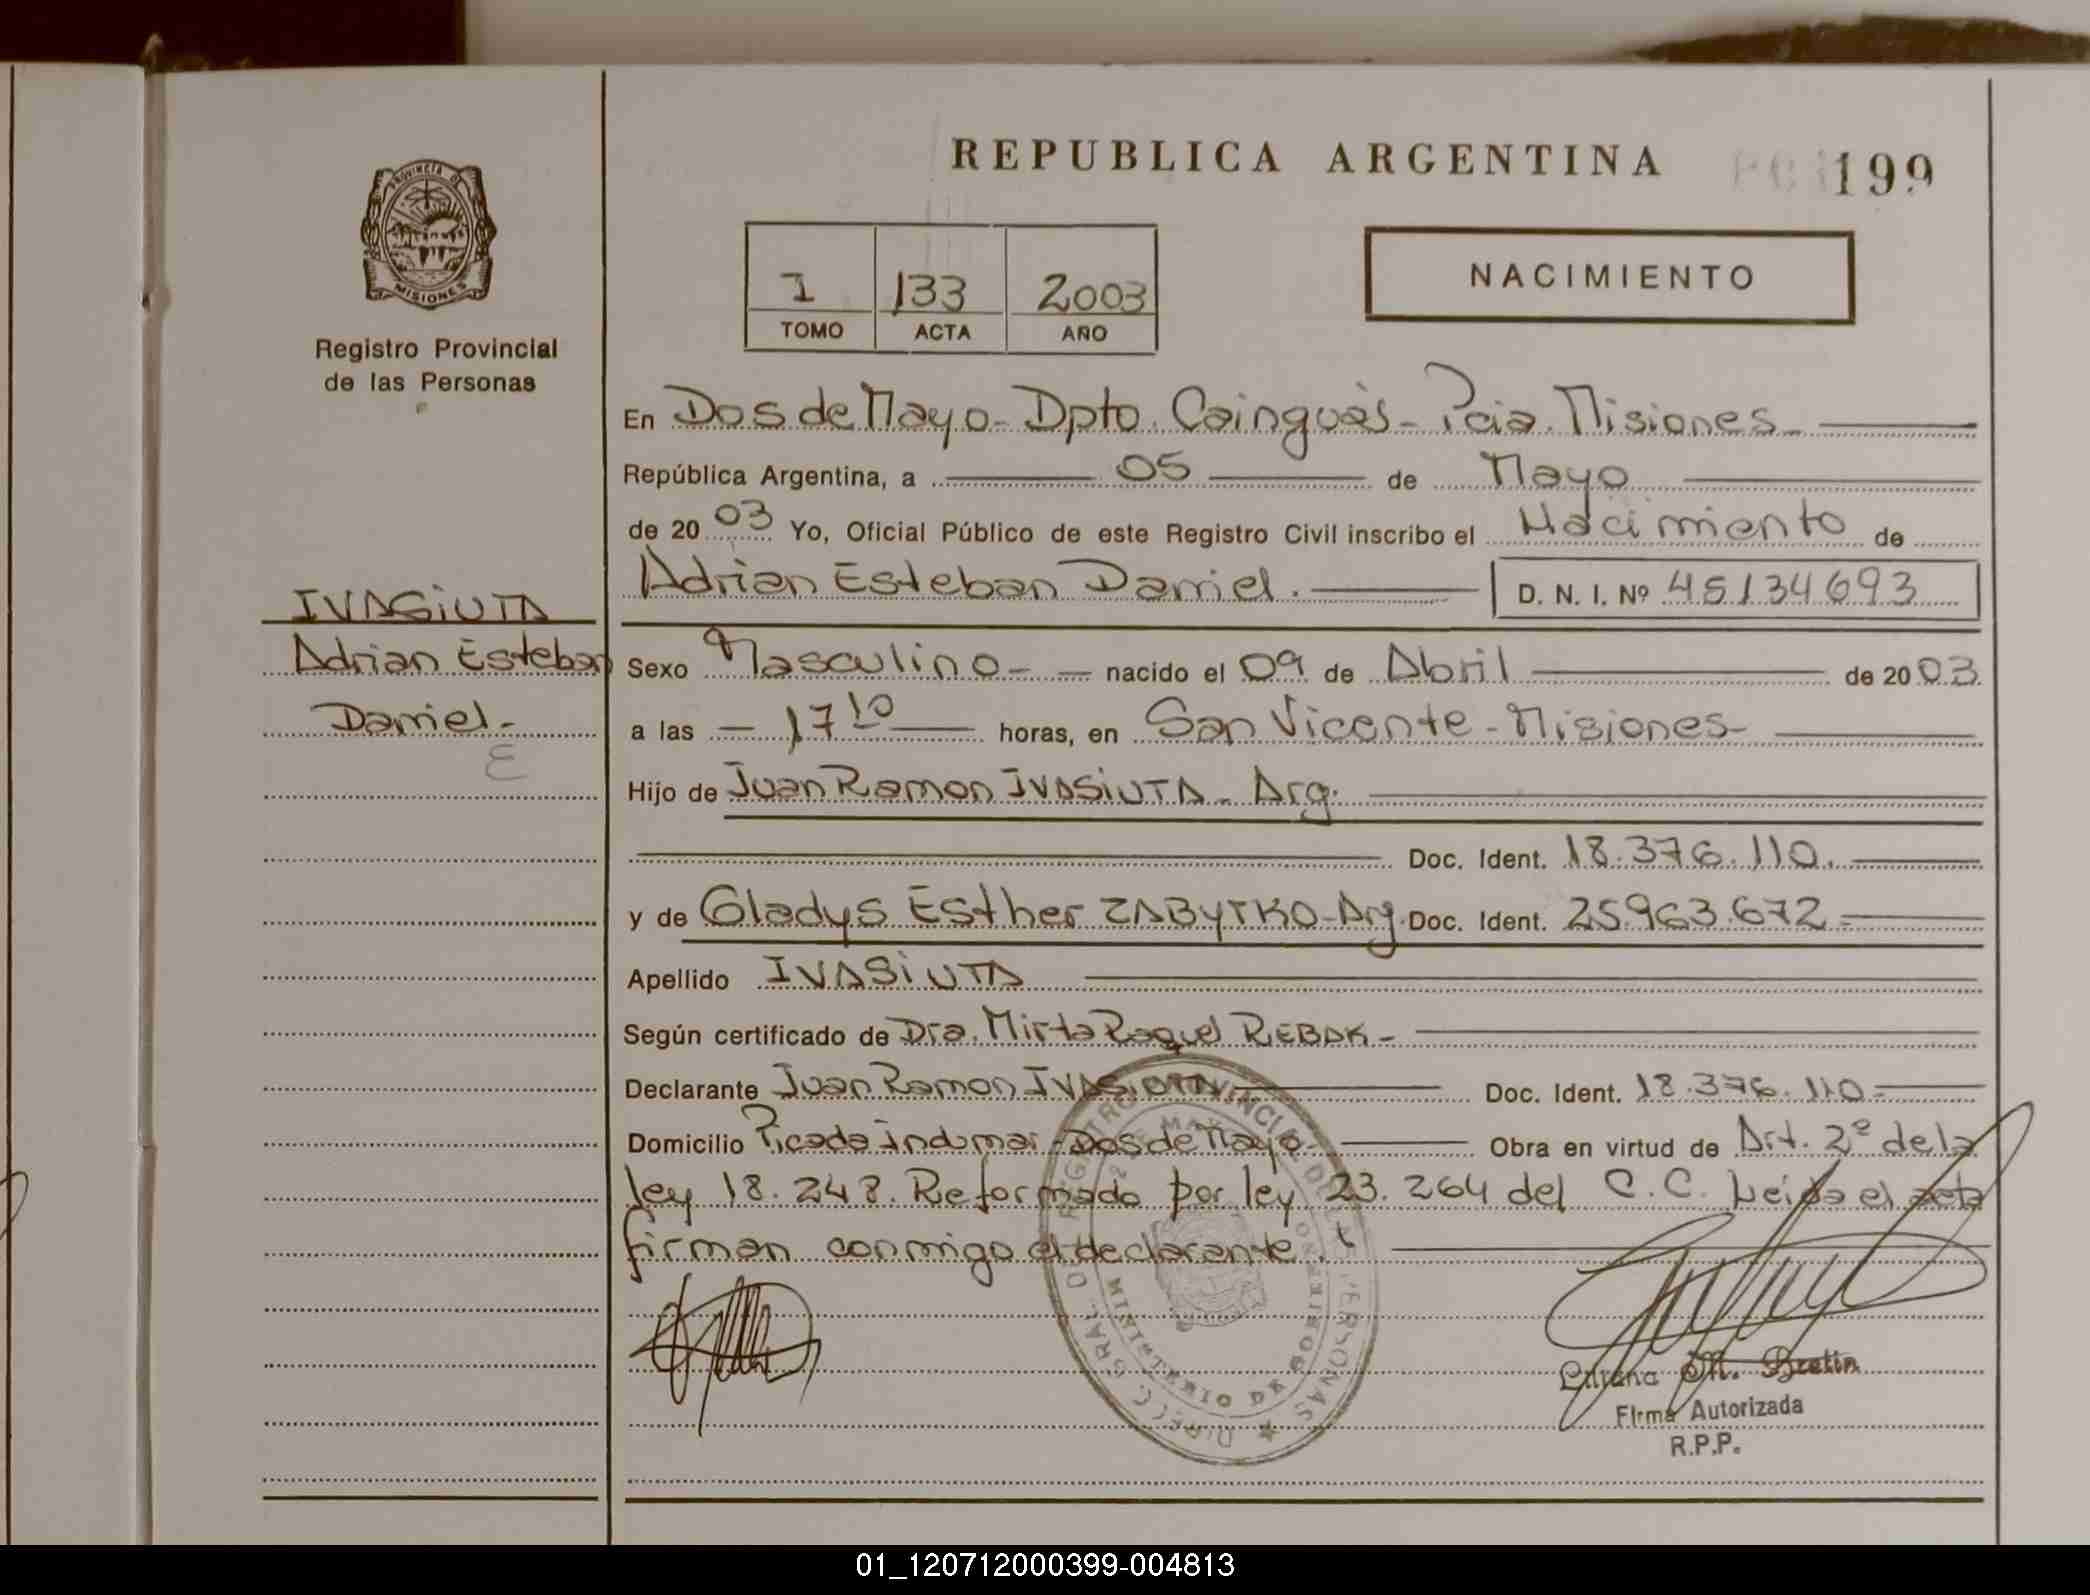 REPUBLICA ARGENTINA
199
PROVINCIA DE
MISIONES
Registro Provincial
de las Personas
I 133 2003
TOMO ACTA AÑO
NACIMIENTO
En Dos de Mayo - Dpto. Cainguás - Pcia. Misiones
República Argentina, a 05 de Mayo
de 20 03 Yo, Oficial Público de este Registro Civil inscribo el Nacimiento de
Adrian Esteban Daniel. D. N. I. Nº 45134693
IVASiUTA
Adrian Esteban
Daniel.-
E
Sexo Masculino - nacido el 09 de Abril de 20 03
a las 17 10 horas, en San Vicente - Misiones -
Hijo de Juan Ramon IVASiUTA - Arg.
Doc. Ident. 18.376.110.
y de Gladys Esther ZABYTKO - Arg. Doc. Ident. 25.963.672 -
Apellido IVASiUTA
Según certificado de Dra. Mirta Raquel REBAK -
Declarante Juan Ramon IVASIUTA Doc. Ident. 18.376.110 -
Domicilio Picada indumar - Dos de Mayo. Obra en virtud de Art. 2º de la
ley 18.248. Reformado por ley 23.264 del C.C. Leida el acta
firman conmigo el declarante. t
DIRECC. GRAL. DE REGISTRO PROVINCIAL DE LAS PERSONAS
MINISTERIO DE GOBIERNO
2 DE MAYO
Liliana M. Bretin
Firma Autorizada
R.P.P.
01_120712000399-004813